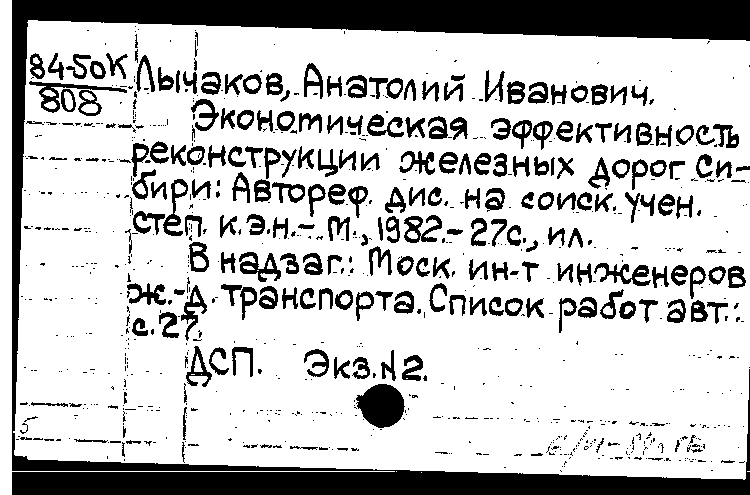 84-50К
808
Лычаков, Анатолий Иванович.
Экономическая эффективность
реконструкции железных дорог Си-
бири: Автореф. дис. на соиск. учен.
степ. к.э.н.- М., 1982.- 27с., ил.
В надзаг.: Моск. ин-т инженеров
ж.-д. транспорта. Список работ авт.:
с.27.
ДСП. Экз.№2.
5